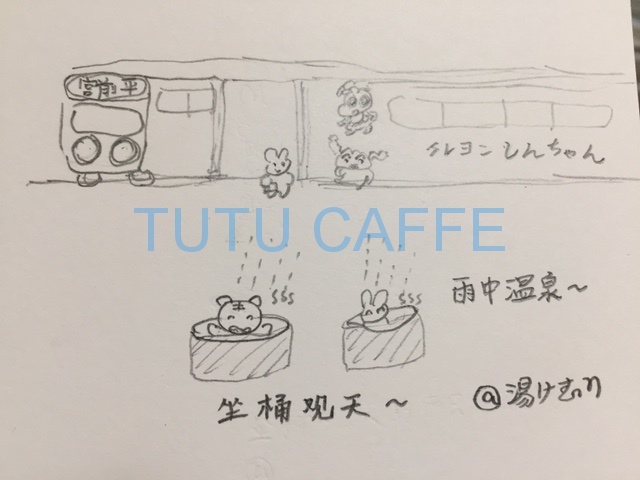 宮前平
クレヨンしんちゃん
TUTU CAFFE
雨中温泉~
坐桶观天~
@湯けむり